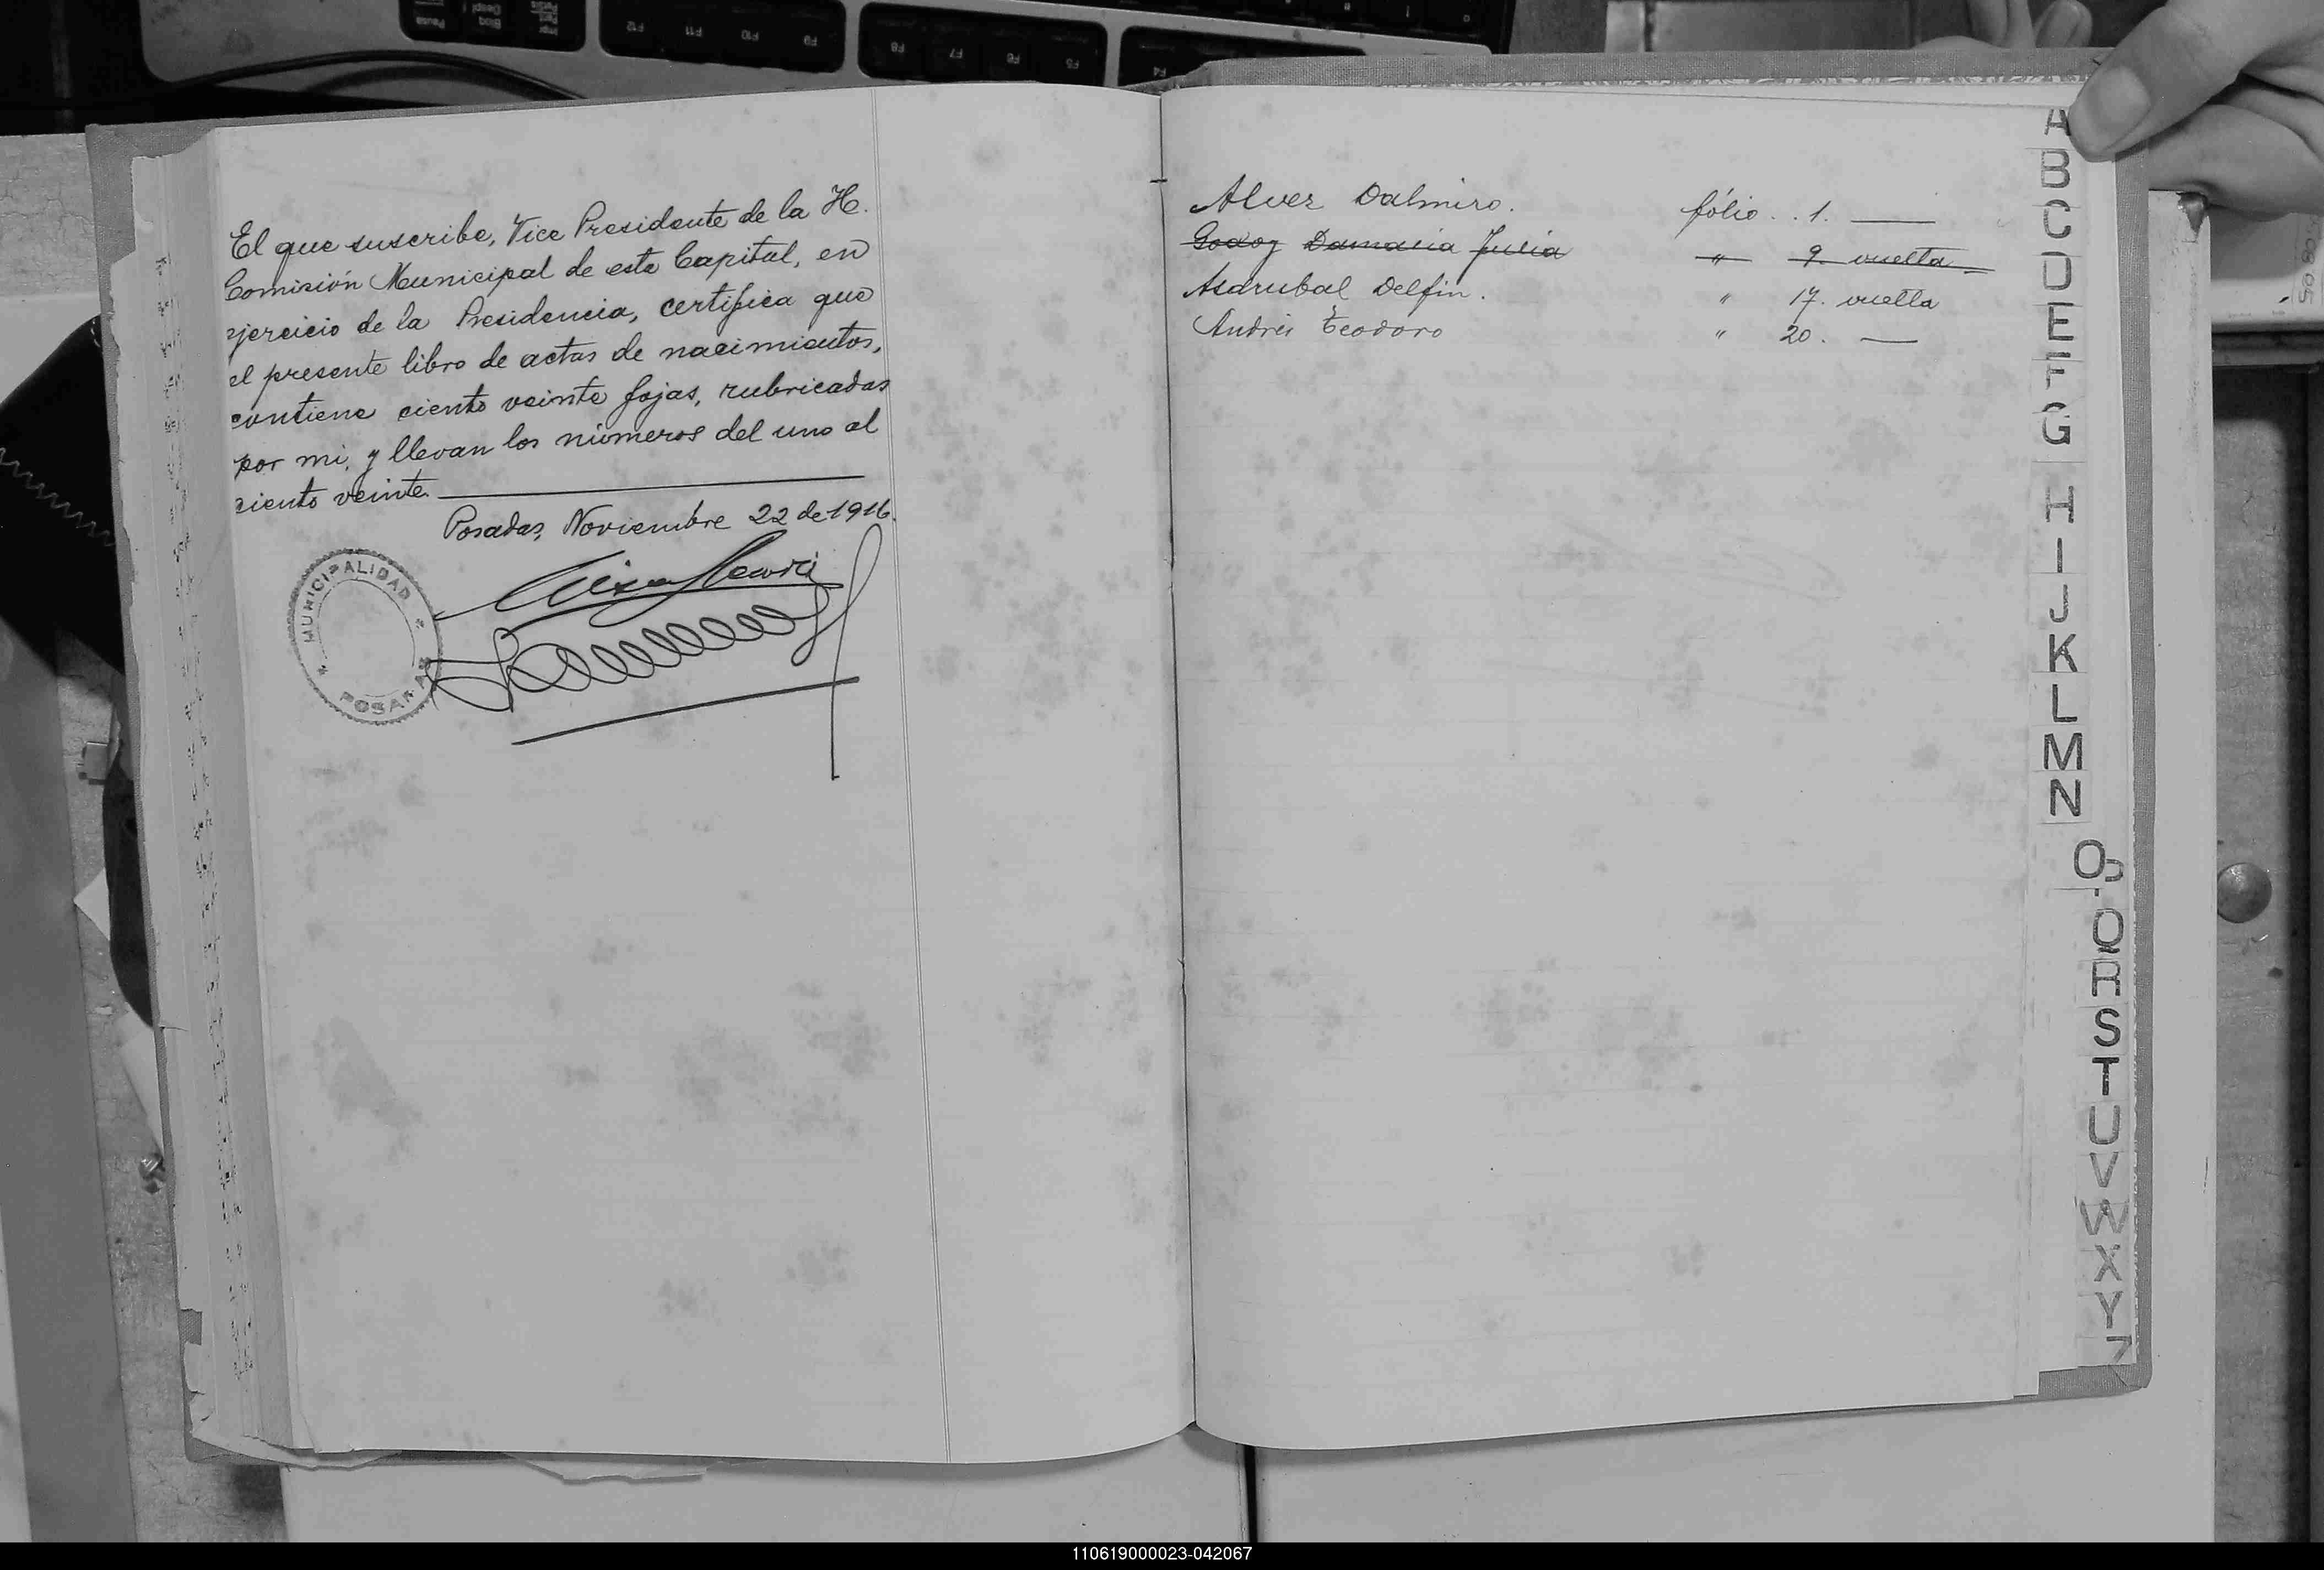 El que suscribe, Vice Presidente de la H.
Comisión Municipal de esta Capital, en
ejercicio de la Presidencia, certifica que
el presente libro de actas de nacimientos,
contiene ciento veinte fojas, rubricadas
por mi, y llevan los números del uno al
ciento veinte.
Posadas, Noviembre 22 de 1916.
MUNICIPALIDAD
POSADAS
Alvez Dalmiro. fólio . . 1.
Godoy Damacia Julia " 9. vuelta
Asdrubal Delfin. " 17. vuelta
Andrés Teodoro " 20.
A
B
C
D
E
F
G
H
I
J
K
L
M
N
O
P
Q
R
S
T
U
V
W
X
Y
Z
F12 F11 F10 F9 F8 F7 F6 F5 F4
110619000023-042067